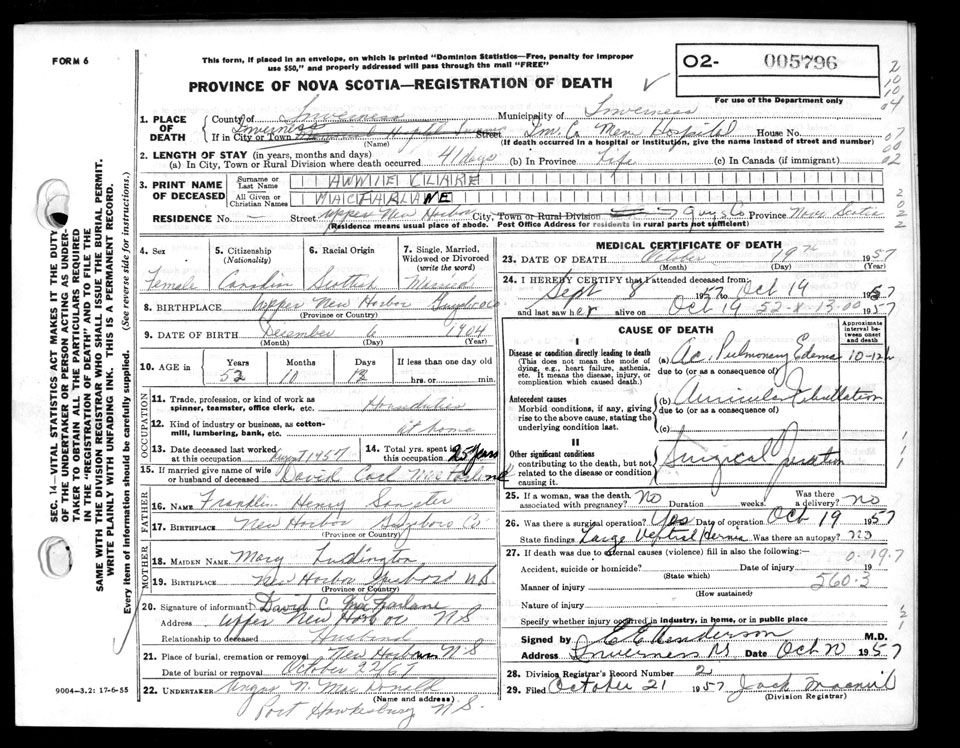 FORM 6
This form, if placed in an envelope, on which is printed "Dominion Statistics—Free, penalty for improper
use $50," and properly addressed will pass through the mail "FREE"
PROVINCE OF NOVA SCOTIA—REGISTRATION OF DEATH
O2- 005796
For use of the Department only
2
10
10
04
07
00
02
2
0
2
2
1. PLACE OF DEATH
County of Inverness Municipality of Inverness
If in City or Town Inverness Street Inv. Co. Mem Hospital House No.
(Name) (If death occurred in a hospital or institution, give the name instead of street and number)
2. LENGTH OF STAY (in years, months and days)
(a) In City, Town or Rural Division where death occurred 41 days (b) In Province Life (c) In Canada (if immigrant)
3. PRINT NAME OF DECEASED
Surname or Last Name ANNIE CLARE
All Given or Christian Names MACFARLANE
RESIDENCE No. — Street Upper New Harbor City, Town or Rural Division Guys Co Province Nova Scotia
(Residence means usual place of abode. Post Office Address for residents in rural parts not sufficient)
4. Sex
Female
5. Citizenship
(Nationality)
Canadian
6. Racial Origin
Scottish
7. Single, Married, Widowed or Divorced
(write the word)
Married
8. BIRTHPLACE Upper New Harbor Guysboro Co
(Province or Country)
9. DATE OF BIRTH December 6 1904
(Month) (Day) (Year)
10. AGE in Years Months Days If less than one day old
52 10 13 hrs. or min.
OCCUPATION
11. Trade, profession, or kind of work as
spinner, teamster, office clerk, etc.
12. Kind of industry or business, as cotton-
mill, lumbering, bank, etc. at home
13. Date deceased last worked at this occupation August 1957
14. Total yrs. spent in this occupation 25 Years
15. If married give name of wife
or husband of deceased David Carl MacFarlane
FATHER
16. NAME Franklin Henry Sangster
17. BIRTHPLACE New Harbor Guysboro Co
(Province or Country)
MOTHER
18. MAIDEN NAME Mary Luddington
19. BIRTHPLACE New Harbor NS
(Province or Country)
20. Signature of informant David C MacFarlane
Address Upper New Harbor NS
Relationship to deceased Husband
21. Place of burial, cremation or removal New Harbor NS
Date of burial or removal October 22/57
22. UNDERTAKER Angus N. MacDonell
(Name and address)
Port Hawkesbury N S.
9004-3.2: 17-6-55
MEDICAL CERTIFICATE OF DEATH
23. DATE OF DEATH October 19th 1957
(Month) (Day) (Year)
24. I HEREBY CERTIFY that I attended deceased from:
Sept 8 1957 to Oct 19 1957
and last saw her alive on Oct 19 1957
52-8-13-00
CAUSE OF DEATH
Approximate interval between onset and death
I
Disease or condition directly leading to death
(This does not mean the mode of dying, e.g., heart failure, asthenia, etc. It means the disease, injury, or complication which caused death.)
(a) Ac. Pulmonary Edema 10-12h
due to (or as a consequence of)
Antecedent causes
Morbid conditions, if any, giving rise to the above cause, stating the underlying condition last.
(b) Auricular Fibrillation
due to (or as a consequence of)
(c)
II
Other significant conditions
contributing to the death, but not related to the disease or condition causing it.
Surgical Operation
25. If a woman, was the death associated with pregnancy? No Duration weeks. Was there a delivery? no
26. Was there a surgical operation? Yes Date of operation Oct 19 1957
State findings Large Ventral Hernia Was there an autopsy? no
27. If death was due to external causes (violence) fill in also the following:—
0-19.7
Accident, suicide or homicide? Date of injury 19
(State which)
560.3
Manner of injury
(How sustained)
Nature of injury
Specify whether injury occurred in industry, in home, or in public place
Signed by C E Henderson M.D.
Address Inverness NS Date Oct 20 1957
28. Division Registrar's Record Number 2
29. Filed October 21 1957 Jack MacNeil
(Division Registrar)
SEC. 14—VITAL STATISTICS ACT MAKES IT THE DUTY
OF THE UNDERTAKER OR PERSON ACTING AS UNDER-
TAKER TO OBTAIN ALL THE PARTICULARS REQUIRED
IN THE "REGISTRATION OF DEATH" AND TO FILE THE
SAME WITH THE DIVISION REGISTRAR WHO SHALL ISSUE THE BURIAL PERMIT.
WRITE PLAINLY WITH UNFADING INK. THIS IS A PERMANENT RECORD.
Every item of information should be carefully supplied. (See reverse side for instructions.)